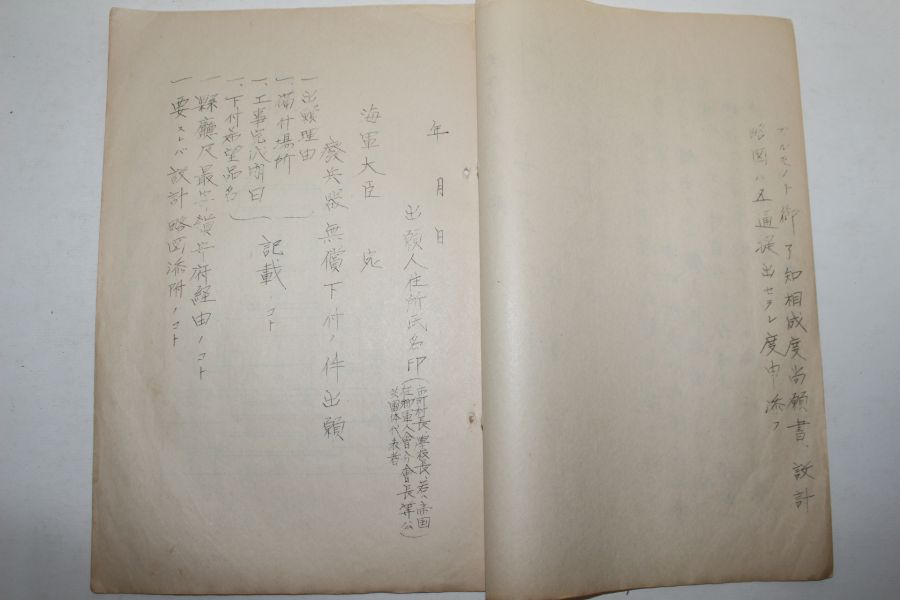 アルモノト御了知相成度尚願書、設計
略図ハ五通提出セラレ度申添フ
年 月 日
出願人住所氏名印
(市町村長、学校長、若ハ帝国
在郷軍人會分會長等公
共団体代表者)
海軍大臣 宛
廃兵器無償下付ノ件出願
一、出願理由
一、備付場所
一、工事完成期日
一、下付希望品名
記載ノコト
一、縣廳及最寄鎮守府経由ノコト
一、要スレバ設計略図添附ノコト